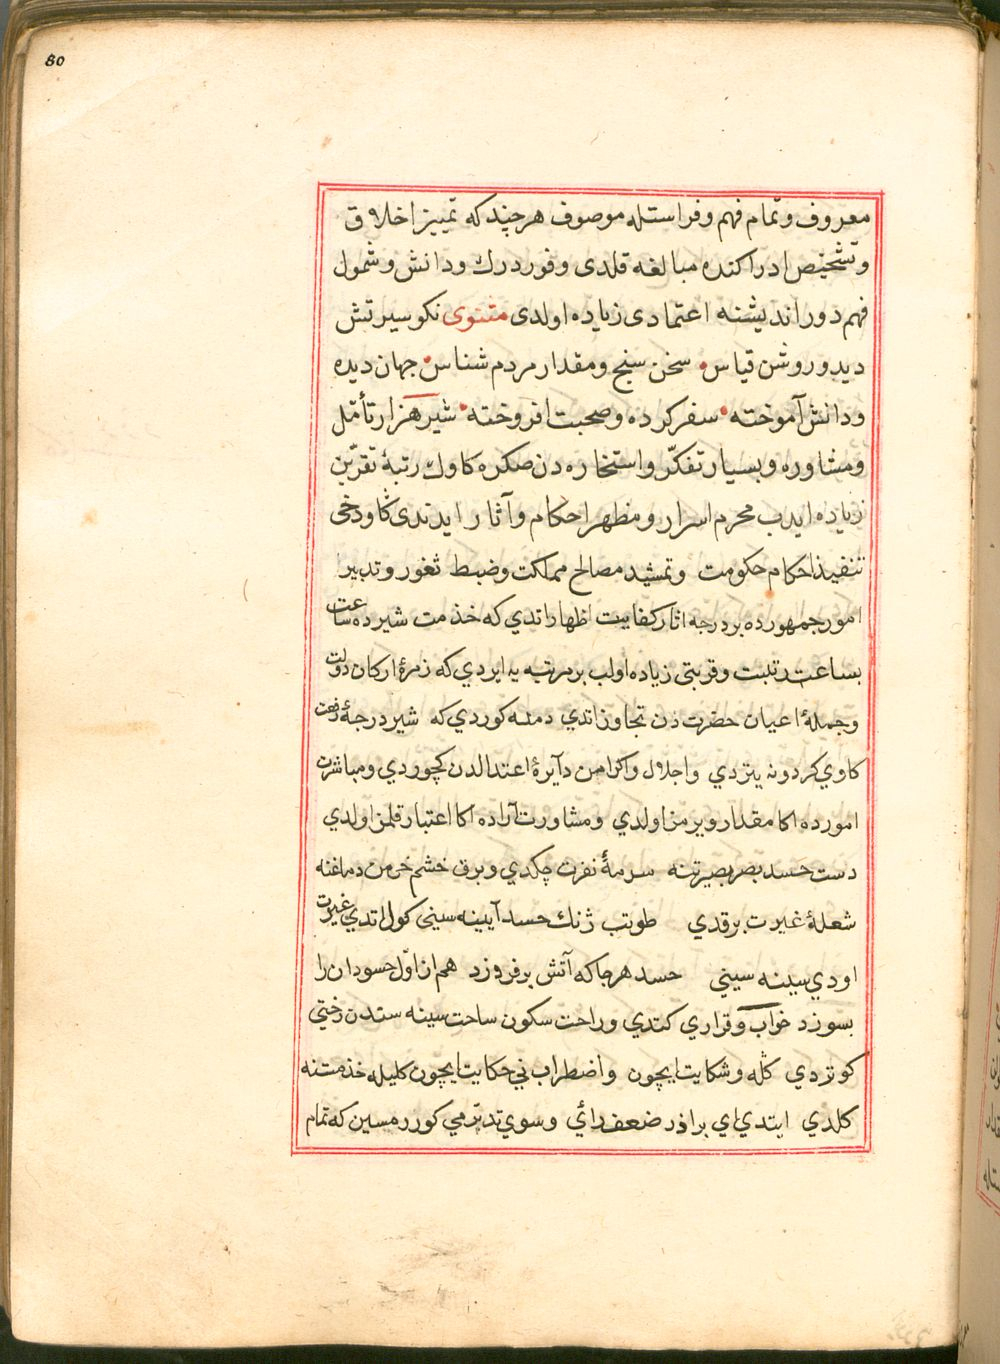 80
معروف و تمام فهم و فراستله موصوف هر چند كه تمييز اخلاق
و تشخيص ادراكنده مبالغه قلدى وفور درك و دانش و شمول
فهم دور انديشنه اعتمادى زياده اولدى مثنوى نكو سيرتش
ديد و روشن قياس سخن سنج و مقدار مردم شناس جهان ديده
و دانش آموخته سفر كرده و صحبت افروخته شير هزار تأمّل
و مشاوره و بسيار تفكّر و استخاره دن صكره كاوك رتبۀ تقرّبن
زياده ايدب محرم اسرار و مظهر احكام و آثار ايدندى كاو دخى
تنفيذ احكام حكومت و تمشيد مصالح مملكت و ضبط ثغور و تدبير
امور جمهورده بر درجه اثار كفايت اظهار اتدي كه خذمت شيرده ساعت
بساعت رتبت و قربتى زياده اولب بر مرتبه يه ايردي كه زمرۀ اركان دولت
و جملۀ اعيان حضرت دن تجاوز اتدي دمنه كوردي كه شير درجۀ رفعت
كاوي كردونه يتردي و اجلال و اكرامن دآيرۀ اعتدالدن كچوردي و مباشرت
امورده اكا مقدار ويرمز اولدي و مشاورت آراده اكا اعتبار قلمز اولدي
دست حسد بصر بصيرتنه سرمۀ نفرت چكدي و برق خشم خرمن دماغنه
شعلۀ غيرت برقدي طوتب ژنك حسد آيينه سيني كول اتدي غيرت
اودي سينه سيني حسد هرجا كه آتش برفروزد هم از اوّل حسودان را
بسوزد خواب و قراري كتدي و راحت سكون ساحت سينه سندن رختي
كوتردي كله و شكايت ايچون و اضطراب ني حكايت ايچون كليله خذمتنه
كلدي ايتدي اي براذر ضعف رأي و سوي تدبّرمي كوررمسين كه تمام